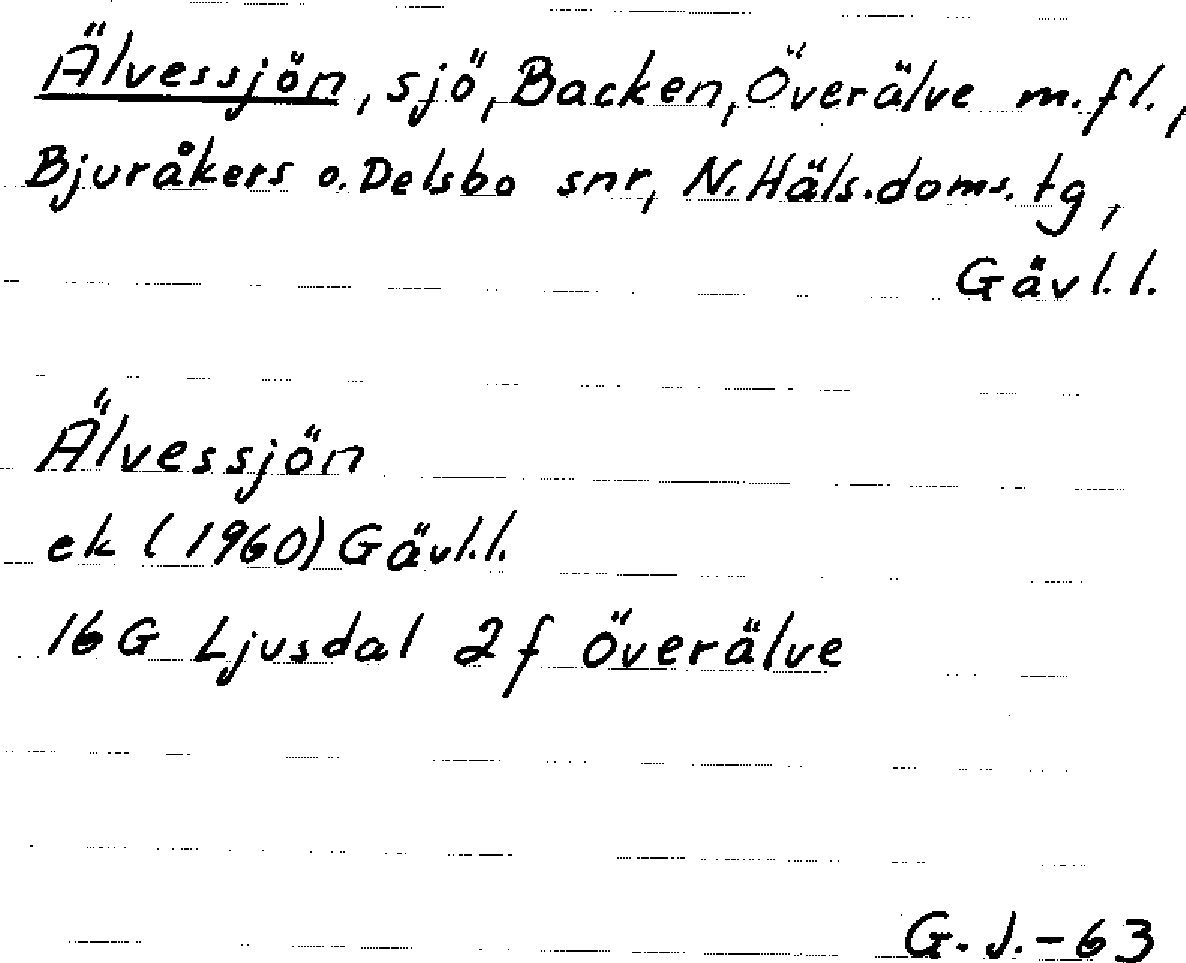 Älvessjön, sjö, Backen, Överälve m.fl.,
Bjuråkers o. Delsbo snr, N. Häls. doms. tg,
Gävl. l.
Älvessjön
ek (1960) Gävl. l.
16 G Ljusdal 2 f Överälve
G. J. -63